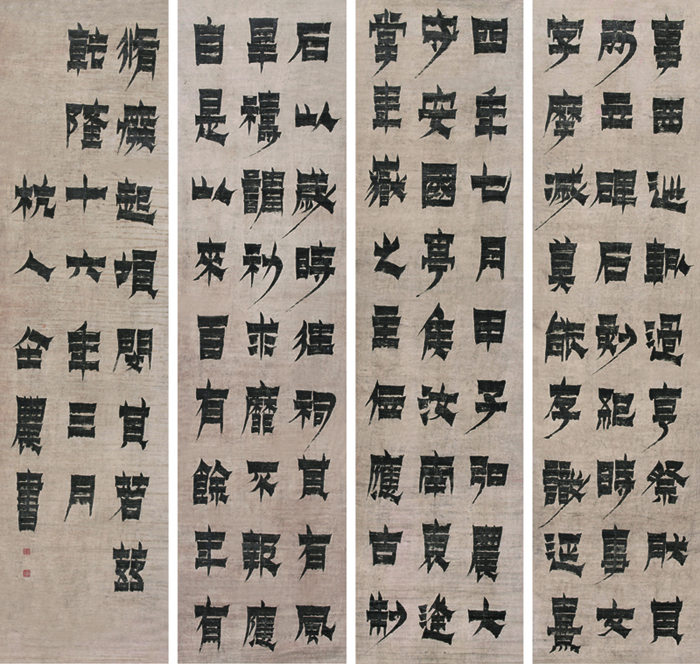 事西巡輒過亨祭然其
所立碑石刻紀時事文
字摩滅莫能存識延熹
四年七月甲子弘農大
守安國亭侯汝南袁逢
掌華嶽之主位應古制
石以歲時往祠其有風
旱禱請祈求靡不報應
自是以來百有餘年有
脩廢起頓閔其若茲
乾隆十六年三月
杭人金農書